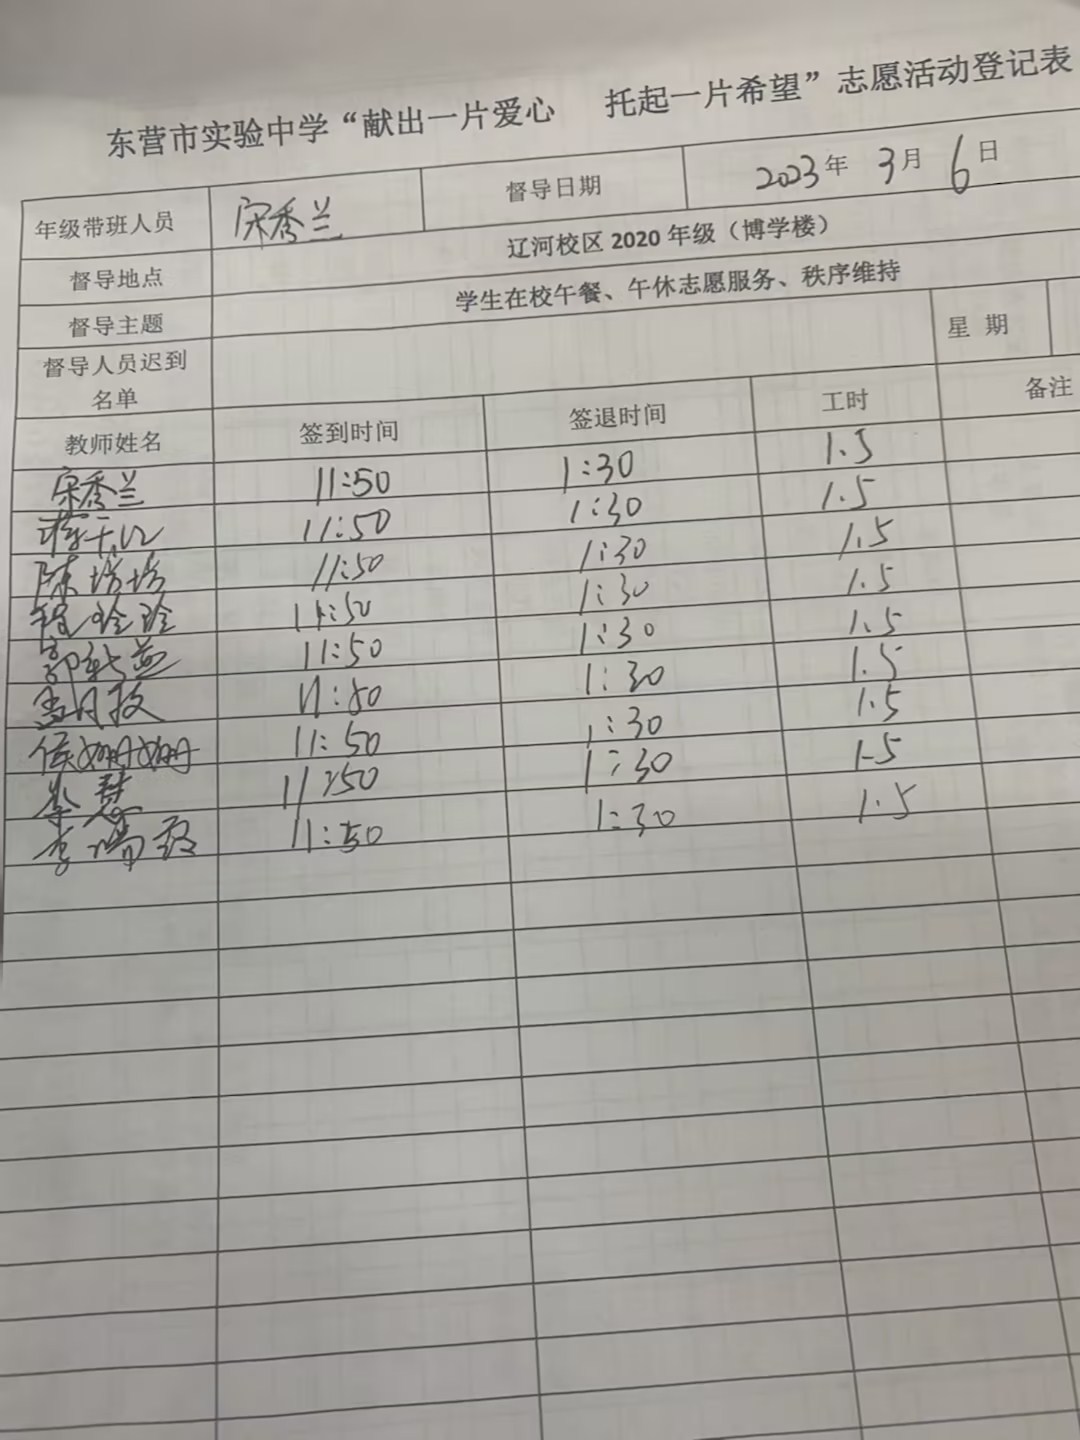 东营市实验中学“献出一片爱心 托起一片希望”志愿活动登记表
年级带班人员 宋秀兰 督导日期 2023年 3月 6日
督导地点 辽河校区 2020 年级（博学楼）
督导主题 学生在校午餐、午休志愿服务、秩序维持
督导人员迟到名单 星 期
教师姓名 签到时间 签退时间 工时 备注
宋秀兰 11:50 1:30 1.5
11:50 1:30 1.5
陈培培 11:50 1:30 1.5
程玲玲 11:50 1:30 1.5
11:50 1:30 1.5
11:50 1:30 1.5
侯姗姗 11:50 1:30 1.5
李慧 11:50 1:30 1.5
11:50 1:30 1.5